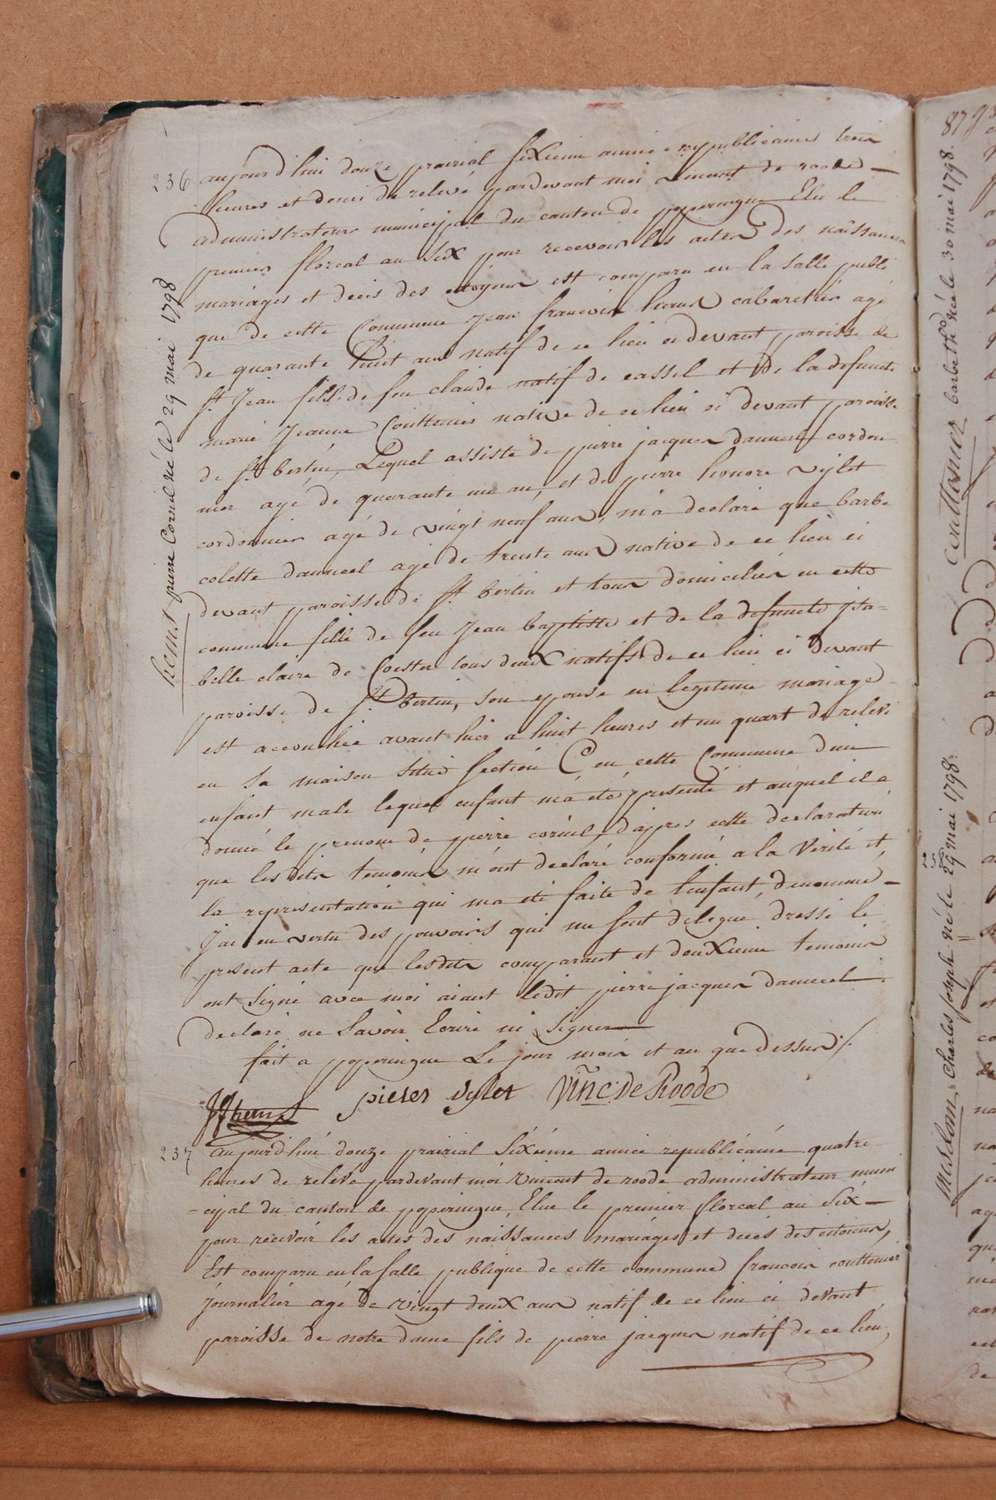 236 aujourd'hui douze prairial sixieme année republicaines trois
heures et demi de relevé pardevant moi vincent de roode
administrateur municipal du canton de poperingue Elu le
premier floreal an six pour recevoir les actes des naissances
mariages et decès des citoyens est comparu en la salle publi
que de cette Commune Jean francois heaus cabaretier agé
de quarante huit ans natif de ce lieu ci devant paroisse de
St Jean fils de feu claude natif de cassel et de la defunte
marie Jeanne Couttenier native de ce lieu ci devant paroisse
de St bertin, Lequel assisté de pierre jacques danneel cordon
nier agé de quarante un an, et de pierre honore vylet
cordonnier agé de vingt neuf ans, m'a declaré que barbe
colette danneel agé de trente ans native de ce lieu ci
devant paroisse de St bertin et tous domiciliés en cette
commune fille de feu Jean baptiste et de la defuncte isa-
belle claire de Coester tous deux natifs de ce lieu ci devant
paroisse de St Bertin, son epouse en legitime mariage
est accouchée avant hier a huit heures et un quart de relevé
en sa maison situé section C en cette Commune d'un
enfant male lequel enfant m'a été presenté et auquel il a
donné le prenom de pierre cornil, d'apres cette declaration
que lesdits temoins m'ont declaré conforme a la Verité et
la representation qui m'a eté faite de l'enfant denommé -
J'ai en vertu des pouvoirs qui me sont delegué dressé le
present acte que lesdits comparant et deuxieme temoin
ont signé avec moi aiant ledit pierre jacques danneel
declaré ne savoir Ecrire ni signer
fait a poperingue Le jour mois et an que dessus
pieter vylet Vinc. De Roode
237 aujourd'hui douze prairial sixième année republicaine quatre
heures de relévé pardevant moi vincent de roode administrateur muni
=cipal du canton de poperingue, Elue le premier floreal an Six -
pour récevoir les actes des naissances mariages et decès des citoiens,
Est comparu en la salle publique de cette commune francois couttenier
journalier agé de vingt deux ans natif de ce lieu ci devant
paroisse de notre dame fils de pierre jacques natif de ce lieu,
pierre Cornil né le 29 mai 1798
87
Couttenier barbe thd née le 30 mai 1798.
Charles Joseph né le 29 mai 1798.